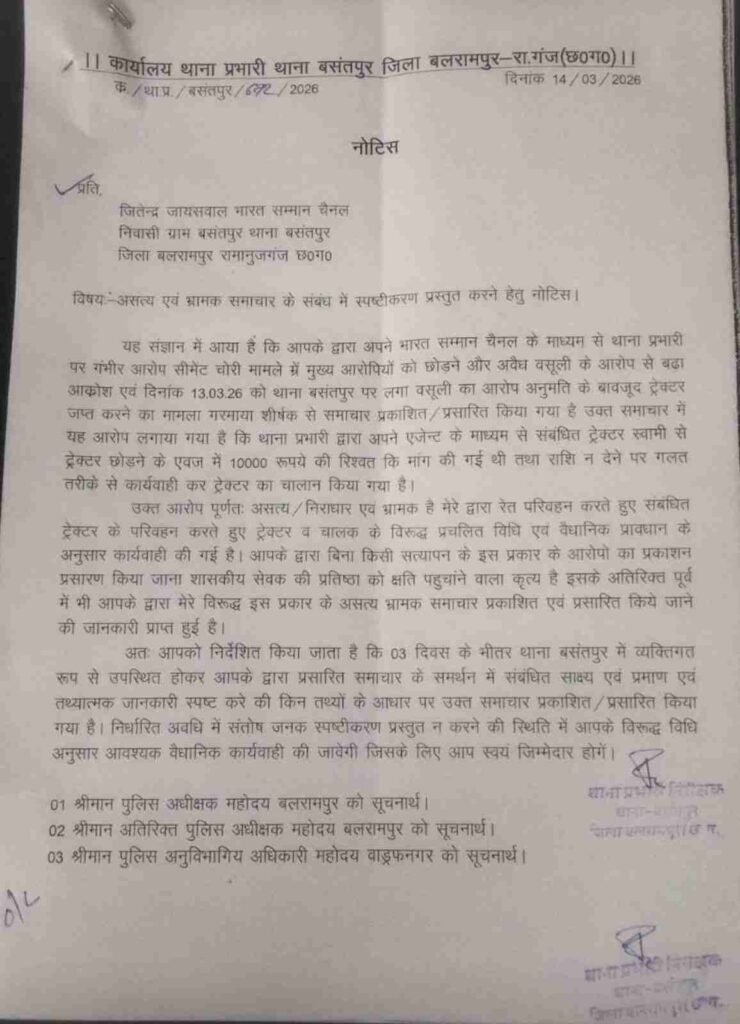 ।। कार्यालय थाना प्रभारी थाना बसंतपुर जिला बलरामपुर–रा.गंज(छ0ग0)।।
क./था.प्र./बसंतपुर/ /2026 दिनांक 14/03/2026
नोटिस
प्रति,
जितेन्द्र जायसवाल भारत सम्मान चैनल
निवासी ग्राम बसंतपुर थाना बसंतपुर
जिला बलरामपुर रामानुजगंज छ0ग0
विषयः–असत्य एवं भ्रामक समाचार के संबंध में स्पष्टीकरण प्रस्तुत करने हेतु नोटिस।
यह संज्ञान में आया है कि आपके द्वारा अपने भारत सम्मान चैनल के माध्यम से थाना प्रभारी
पर गंभीर आरोप सीमेंट चोरी मामले म्रें मुख्य आरोपियों को छोड़ने और अवैध वसूली के आरोप से बढा
आक्रोश एवं दिनांक 13.03.26 को थाना बसंतपुर पर लगा वसूली का आरोप अनुमति के बावजूद ट्रेक्टर
जप्त करने का मामला गरमाया शीर्षक से समाचार प्रकाशित/प्रसारित किया गया है उक्त समाचार में
यह आरोप लगाया गया है कि थाना प्रभारी द्वारा अपने एजेन्ट के माध्यम से संबंधित ट्रेक्टर स्वामी से
ट्रेक्टर छोड़ने के एवज में 10000 रूपये की रिश्वत कि मांग की गई थी तथा राशि न देने पर गलत
तरीके से कार्यवाही कर ट्रेक्टर का चालान किया गया है।
उक्त आरोप पूर्णतः असत्य/निराधार एवं भ्रामक है मेरे द्वारा रेत परिवहन करते हुए संबंधित
ट्रेक्टर के परिवहन करते हुए ट्रेक्टर व चालक के विरूद्ध प्रचलित विधि एवं वैधानिक प्रावधान के
अनुसार कार्यवाही की गई है। आपके द्वारा बिना किसी सत्यापन के इस प्रकार के आरोपो का प्रकाशन
प्रसारण किया जाना शासकीय सेवक की प्रतिष्ठा को क्षति पहुचांने वाला कृत्य है इसके अतिरिक्त पूर्व
में भी आपके द्वारा मेरे विरूद्ध इस प्रकार के असत्य भ्रामक समाचार प्रकाशित एवं प्रसारित किये जाने
की जानकारी प्राप्त हुई है।
अतः आपको निर्देशित किया जाता है कि 03 दिवस के भीतर थाना बसंतपुर में व्यक्तिगत
रूप से उपस्थित होकर आपके द्वारा प्रसारित समाचार के समर्थन में संबंधित साक्ष्य एवं प्रमाण एवं
तथ्यात्मक जानकारी स्पष्ट करे की किन तथ्यों के आधार पर उक्त समाचार प्रकाशित/प्रसारित किया
गया है। निर्धारित अवधि में संतोष जनक स्पष्टीकरण प्रस्तुत न करने की स्थिति में आपके विरूद्ध विधि
अनुसार आवश्यक वैधानिक कार्यवाही की जावेगी जिसके लिए आप स्वयं जिम्मेदार होगें।
थाना प्रभारी निरीक्षक
थाना–बसंतपुर
01 श्रीमान पुलिस अधीक्षक महोदय बलरामपुर को सूचनार्थ।
02 श्रीमान अतिरिक्त पुलिस अधीक्षक महोदय बलरामपुर को सूचनार्थ।
जिला बलरामपुर
03 श्रीमान पुलिस अनुविभागिय अधिकारी महोदय वाड्रफनगर को सूचनार्थ।
थाना प्रभारी निरीक्षक
थाना–बसंतपुर
जिला बलरामपुर